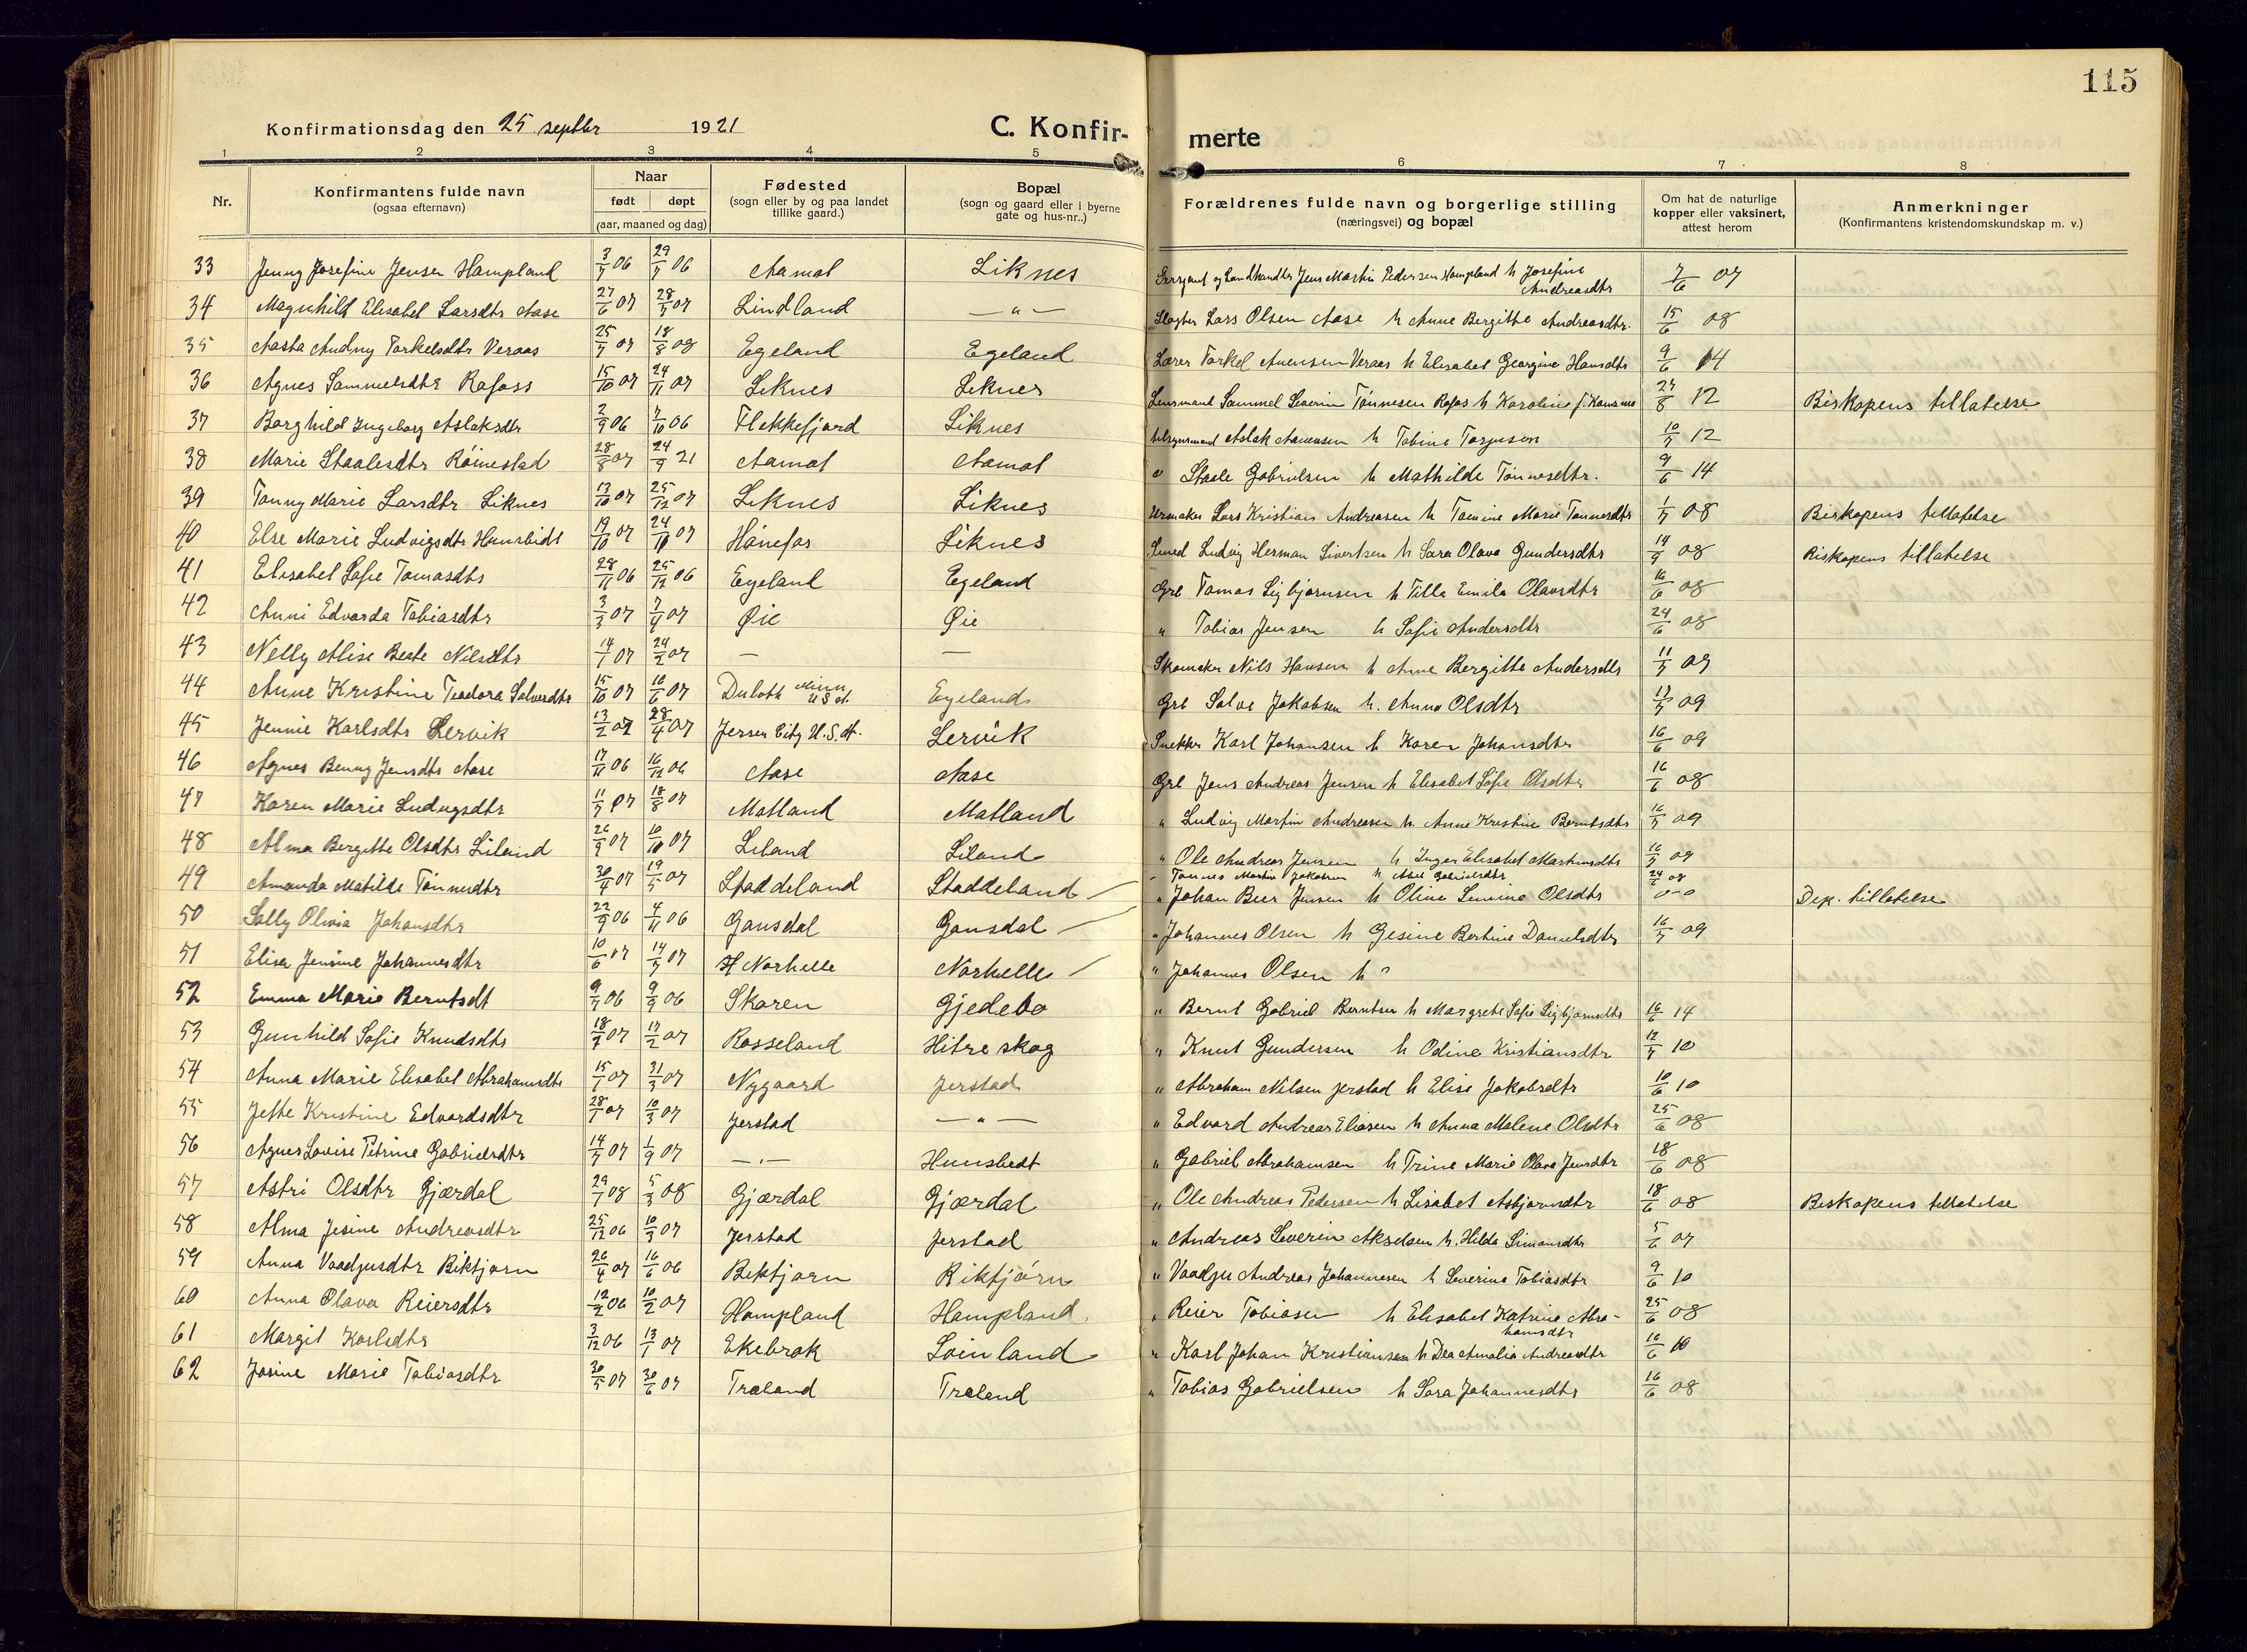 115
Konfirmationsdag den 25 septbr 1921
C. Konfir-
merte
1 2 3 4 5 6 7 8
Nr.
Konfirmantens fulde navn
(ogsaa efternavn)
Naar
født døpt
(aar, maaned og dag)
Fødested
(sogn eller by og paa landet
tillike gaard.)
Bopæl
(sogn og gaard eller i byerne
gate og hus-nr..)
Forældrenes fulde navn og borgerlige stilling
(næringsvei) og bopæl
Om hat de naturlige
kopper eller vaksinert,
attest herom
Anmerkninger
(Konfirmantens kristendomskundskap m. v.)
33 Jenny Josefine Jensen Hampland 3/7 06 29/7 06 Aamot Liknes Sersjant og Landhandler Jens Martin Pedersen Hampland h Josefine Andreasdtr 7/6 07
34 Magnhild Elisabet Larsdtr Aase 27/6 07 28/7 07 Lindland — " — Lars Olsen Aase h Anne Bergitte Andreasdtr. 15/6 08
35 Aasta Audny Torkelsdtr Veraas 25/7 07 18/8 08 Egeland Egeland Lærer Torkel Aanensen Veraas h Elisabet Georgine Hansdtr 9/6 14
36 Agnes Sammelsdtr Rafoss 15/10 07 24/11 07 Liknes Liknes Lensmand Sammel Severin Tønnesen Rafos h Karoline f. 27/8 12 Biskopens tillatelse
37 Borghild Ingeborg Aslaksdtr 2/9 06 7/10 06 Flekkefjord Liknes Aslak Aanensen h Tobine Torjusen 10/7 12
38 Marie Staalesdtr Røinestad 28/8 07 24/9 21 Aamot Aamot Staale Gabrielsen h Mathilde Tønnesdtr. 9/6 14
39 Tonny Marie Larsdtr Liknes 13/10 07 25/12 07 Liknes Liknes Urmaker Lars Kristian Andreasen h Tomine Marie Tønnesdtr 1/7 08 Biskopens tillatelse
40 Else Marie Ludvigsdtr 19/10 07 24/11 07 Hønefos Liknes Smed Ludvig Herman Sivertsen h Sara Olava Gundersdtr 14/9 08 Biskopens tillatelse
41 Elisabet Sofie Tomasdtr 28/11 06 25/12 06 Egeland Egeland Grb Tomas Sigbjørnsen h Tilla Emila Olavsdtr 16/6 08
42 Anni Edvarda Tobiasdtr 3/3 07 7/4 07 Øie Øie " Tobias Jensen h Sofie Andersdtr 24/6 08
43 Nelly Alise Beate Nilsdtr 14/1 07 24/2 07 — — Skomaker Nils Hansen h Ane Bergitte Andersdtr 11/7 09
44 Anne Kristine Teodora Salvesdtr 15/10 07 16/6 07 Duluth Minn U S A. Egeland Grb Salve Jakobsen h. Anna Olsdtr 17/7 09
45 Jennie Karlsdtr Lervik 13/2 07 28/4 07 Jersey City U.S.A. Lervik Snekker Karl Johansen h Karen Johansdtr 16/6 09
46 Agnes Benny Jensdtr Aase 17/11 06 16/12 06 Aase Aase Grb Jens Andreas Jensen h Elisabet Sofie Olsdtr 16/6 08
47 Karen Marie Ludvigsdtr 11/7 07 18/8 07 Matland Matland " Ludvig Martin Andreasen h Anne Kristine Berntsdtr 16/7 09
48 Alma Bergitte Olsdtr Liland 26/9 07 10/10 07 Liland Liland " Ole Andreas Jensen h Inger Elisabet Martinsdtr 16/7 09
49 Amanda Matilde Tønnesdtr 30/4 07 19/5 07 Staddeland Staddeland — " Tønnes Martin Jakobsen h Gabrielsdtr 24/6 08
50 Solly Olivia Johansdtr 22/9 06 4/11 06 Gausdal Gausdal — " Johan Beer Jensen h Oline Semine Olsdtr 0-0 Dep. tillatelse
51 Elise Jensine Johannesdtr 10/6 07 14/7 07 Norhelle Norhelle — " Johannes Olsen h Gesine Bertine Danielsdtr 16/7 09
" Johannes Olsen h "
52 Emma Marie Berntsdt 9/7 06 9/9 06 Skoren Gjedebo " Bernt Gabriel Berntsen h Margrete Sofie Sigbjørnsdtr 16/6 14
53 Gunhild Sofie Knudsdtr 18/1 07 17/2 07 Rosseland Hitre skog " Knut Gundersen h Odine Kristiansdtr 12/7 10
54 Anna Marie Elisabet Abrahamsdtr 15/1 07 31/3 07 Nygaard Jerstad " Abraham Nilsen Jerstad h Elise Jakobsdtr 10/6 10
55 Jette Kristine Edvardsdtr 28/1 07 10/3 07 Jerstad — " — " Edvard Andreas Eliasen h Anna Malene Olsdtr 25/6 08
56 Agnes Lovise Petrine Gabrielsdtr 14/7 07 1/9 07 — " — Hunsbedt " Gabriel Abrahamsen h Trine Marie Olava Jensdtr 18/6 08
57 Astri Olsdtr Gjærdal 29/1 08 5/3 08 Gjærdal Gjærdal " Ole Andreas Pedersen h Lisabet Asbjørnsdtr 18/6 08 Biskopens tillatelse
58 Alma Jesine Andreasdtr 25/12 06 10/3 07 Jerstad Jerstad " Andreas Severin Akselsen h. Hilda Simonsdtr 5/6 07
59 Anna Vaadjusdtr Rikstjørn 26/4 07 16/6 06 Rikstjørn Rikstjørn " Vaadju Andreas Johannesen h Severine Tobiasdtr 9/6 10
60 Anna Olava Reiersdtr 12/2 06 10/2 07 Hampland Hampland " Reier Tobiasen h Elisabet Katrine Abrahamsdtr 25/6 08
61 Margit Karlsdtr 3/12 06 13/1 07 Ekebrok Loinland " Karl Johan Kristiansen h Dea Amalia Andreasdtr 16/6 10
62 Josine Marie Tobiasdtr 30/5 07 30/6 07 Træland Træland " Tobias Gabrielsen h Sara Johannesdtr 16/6 08